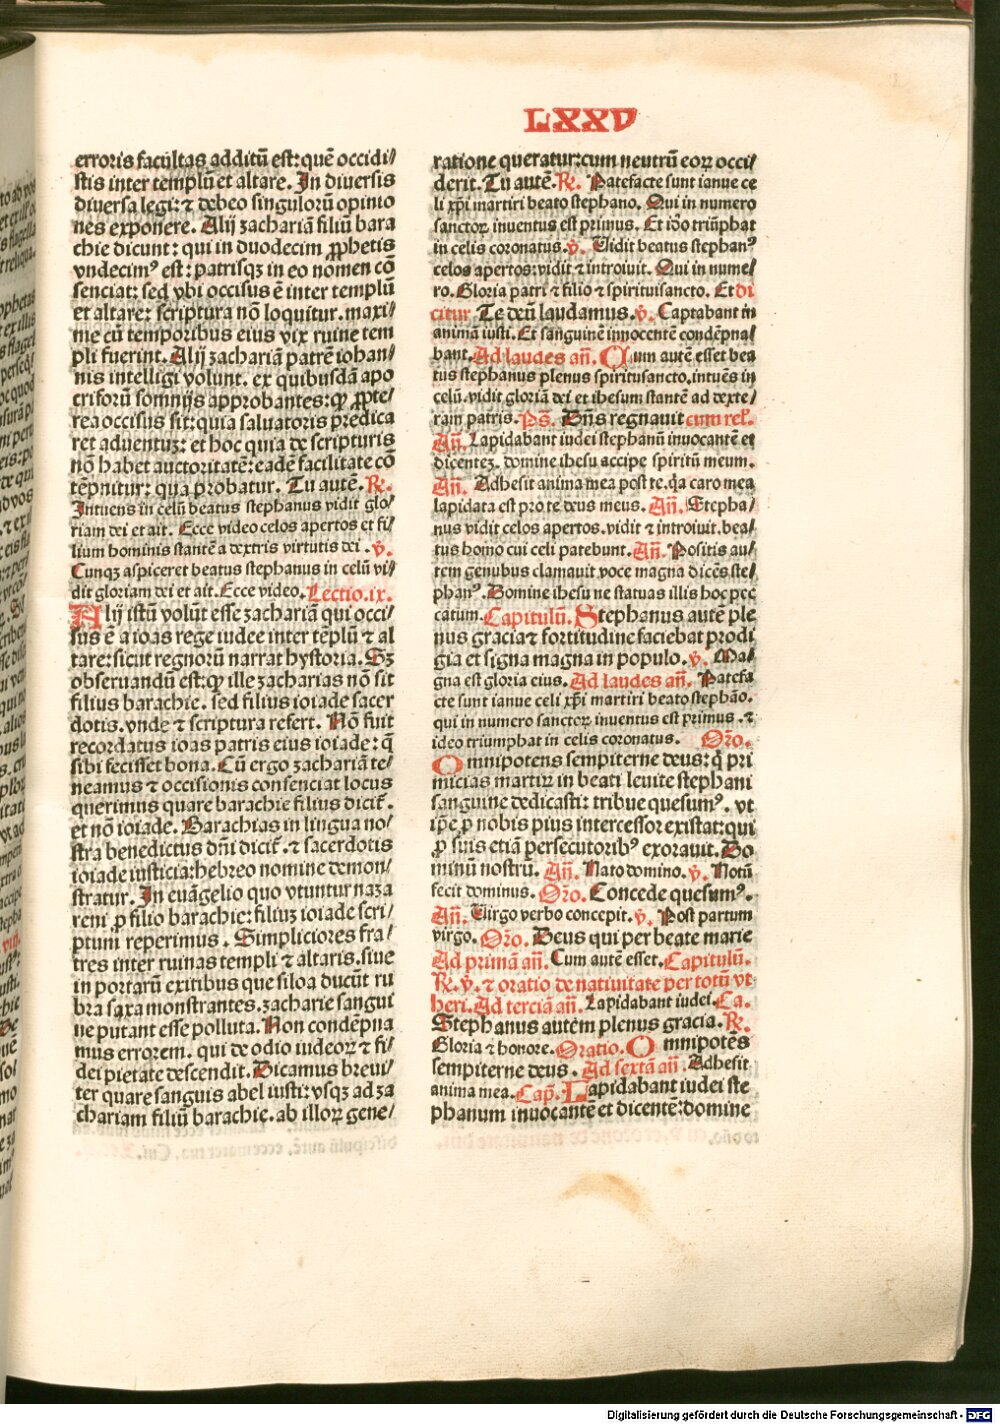 LXXV
erroris facultas additū est: quē occidi/
stis inter templū et altare. In diversis
diversa legi: ⁊ debeo singulorū opinio
nes exponere. Alij zachariā filiū bara
chie dicunt: qui in duodecim ꝓphetis
vndecimꝰ est: patrisqꝫ in eo nomen cō
senciat: sed vbi occisus ē inter templū
et altare: scriptura nō loquitur. maxi/
me cū temporibus eius vix ruine tem
pli fuerint. Alij zachariā patrē iohan/
nis intelligi volunt. ex quibusdā apo
crisorū somnijs approbantes: ꝙ ꝓpte/
rea occisus sit: quia saluatoris predica
ret aduentuꝫ: et hoc quia de scripturis
nō habet auctoritatē: eadē facilitate cō
tēpnitur: qua probatur. Tu autē. R̄.
Intuens in celū beatus stephanus vidit glo/
riam dei et ait. Ecce video celos apertos et fi/
lium hominis stantē a dextris virtutis dei. v̄.
Cunqꝫ aspiceret beatus stephanus in celū vi/
dit gloriam dei et ait. Ecce video. Lectio.ix.
Alij istū volūt esse zachariā qui occi/
sus ē a ioas rege iudee inter tēplū ⁊ al
tare: sicut regnorū narrat hystoria. Sꝫ
obseruandū est: ꝙ ille zacharias nō sit
filius barachie. sed filius ioiade sacer
dotis. vnde ⁊ scriptura refert. Nō fuit
recordatus ioas patris eius ioiade: q̄
sibi fecisset bona. Cū ergo zachariā te/
neamus ⁊ occisionis consenciat locus
querimus quare barachie filius dicit̄.
et nō ioiade. Barachias in lingua no/
stra benedictus dn̄i dicit̄. ⁊ sacerdotis
ioiade iusticia: hebreo nomine demon/
stratur. In euāgelio quo vtuntur naza
reni ꝓ filio barachie: filiuꝫ ioiade scri/
ptum reperimus. Simpliciores fra/
tres inter ruinas templi ⁊ altaris. siue
in portarū exitibus que siloa ducūt ru
bra saxa monstrantes. zacharie sangui
ne putant esse polluta. Non condēpna
mus errorem. qui de odio iudeoꝝ ⁊ fi/
dei pietate descendit. Dicamus breui/
ter quare sanguis abel iusti: vsqꝫ ad za
chariam filiū barachie. ab illoꝝ gene/
ratione queratur: cum neutrū eoꝝ occi/
derit. Tu autē. R̄. Patefacte sunt ianue ce
li xp̄i martiri beato stephano. Qui in numero
sanctoꝝ inuentus est primus. Et iō̄o triūphat
in celis coronatus. v̄. Vidit beatus stephanꝰ
celos apertos: vidit ⁊ introiuit. Qui in nume/
ro. Gloria patri ⁊ filio ⁊ spirituisancto. Et di
citur Te deū laudamus. v̄. Captabant in
animā iusti. Et sanguinē innocentē condēpna/
bant. Ad laudes an̄. Cum autē esset bea
tus stephanus plenus spiritusancto. intuēs in
celū. vidit gloriā dei et ihesum stantē ad dexte/
ram patris. Ps̄. Dn̄s regnauit cum rel̄.
An̄. Lapidabant iudei stephanū inuocantē et
dicenteꝫ. domine ihesu accipe spiritū meum.
An̄. Adhesit anima mea post te. q̄a caro mea
lapidata est pro te deus meus. An̄. Stepha/
nus vidit celos apertos. vidit ⁊ introiuit. bea/
tus homo cui celi patebunt. An̄. Positis au/
tem genubus clamauit voce magna dicēs ste/
phanꝰ. Domine ihesu ne statuas illis hoc pec
catum. Capitulū. Stephanus autē ple
nus gracia ⁊ fortitudine faciebat prodi
gia et signa magna in populo. v̄. Ma/
gna est gloria eius. Ad laudes an̄. Patefa
cte sunt ianue celi xp̄i martiri beato stephāo.
qui in numero sanctoꝝ inuentus est primus. ⁊
ideo triumphat in celis coronatus. Oro̅.
Omnipotens sempiterne deus: q̄ pri
micias martiꝝ in beati leuite stephani
sanguine dedicasti: tribue quesumꝰ. vt
ip̄e ꝓ nobis pius intercessor existat: qui
ꝓ suis etiā persecutoribꝰ exorauit. Do
minū nostrū. An̄. Nato domino. v̄. Notū
fecit dominus. Oro̅. Concede quesumꝰ.
An̄. Virgo verbo concepit. v̄. Post partum
virgo. Oro̅. Deus qui per beate marie
Ad primā an̄. Cum autē esset. Capitulū.
R̄. v̄. ⁊ oratio de natiuitate per totū vt
heri. Ad terciā an̄. Lapidabant iudei. Ca.
Stephanus autem plenus gracia. R̄.
Gloria ⁊ honore. Oratio. Omnipotēs
sempiterne deus. Ad sextā an̄. Adhesit
anima mea. Cap̄. Lapidabant iudei ste
phanum inuocantē et dicentē: domine
Digitalisierung gefördert durch die Deutsche Forschungsgemeinschaft - DFG